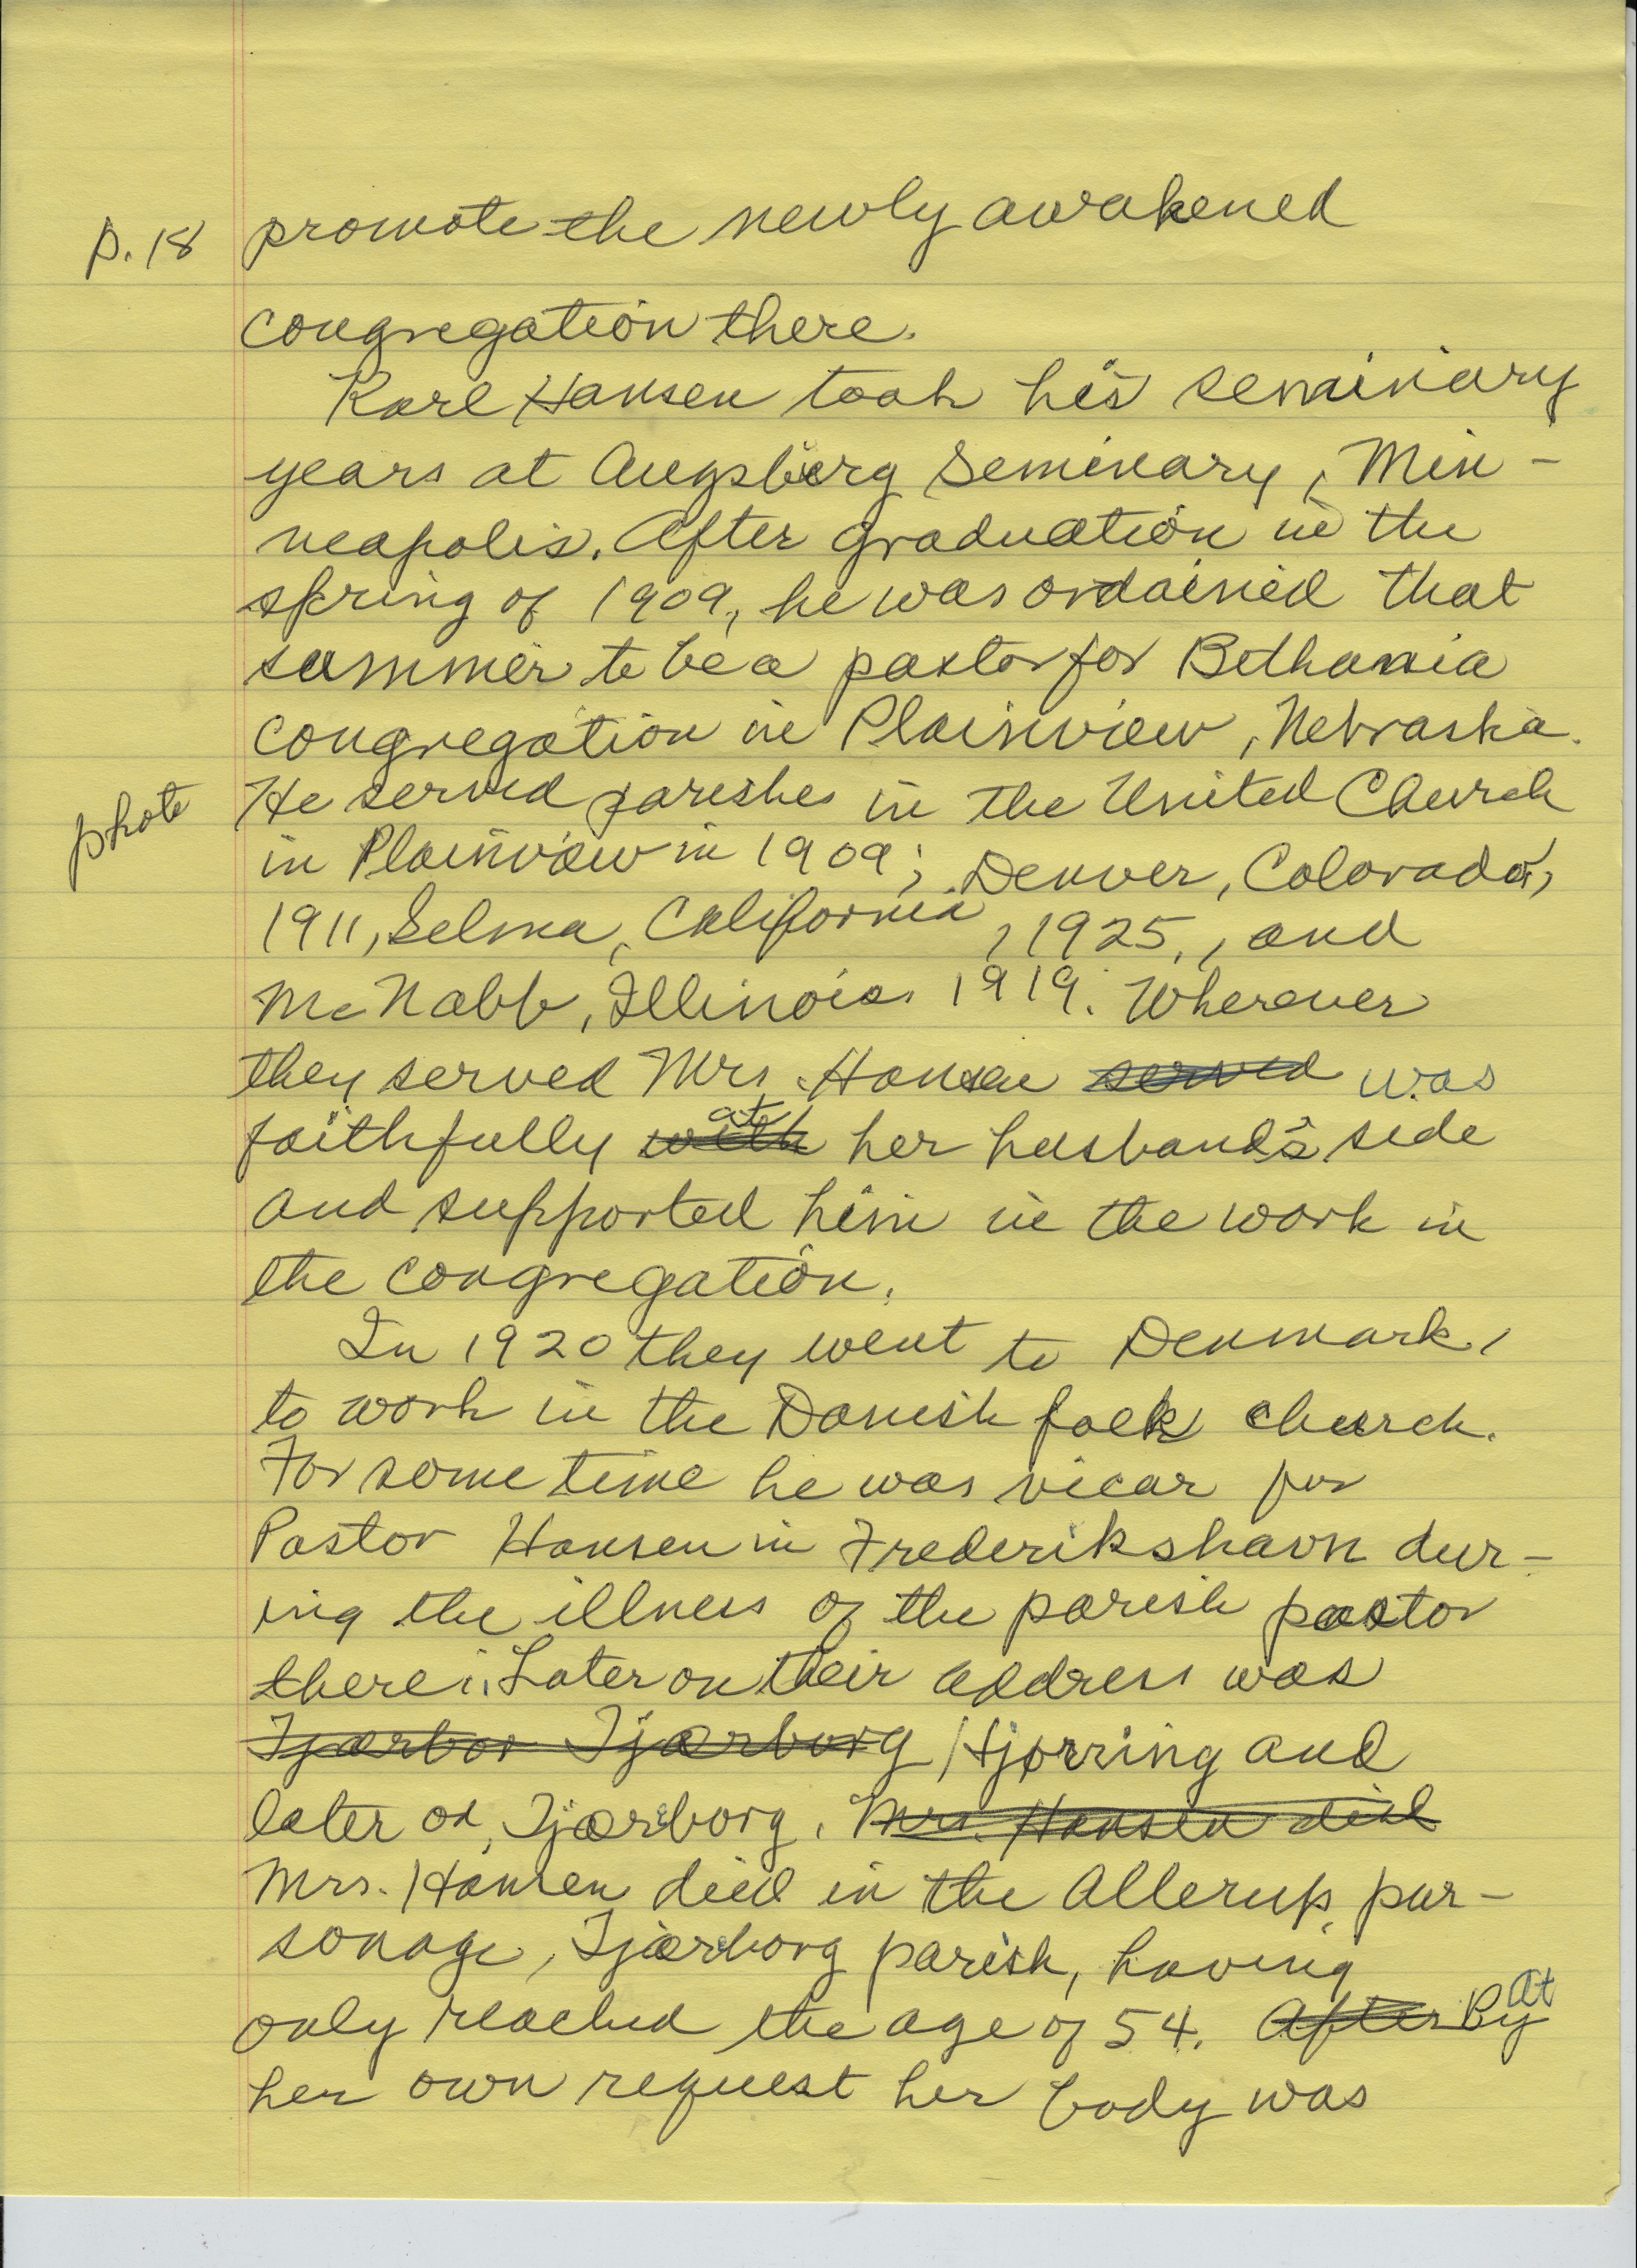 p. 18 promote the newly awakened
congregation there.
Karl Hansen took his seminary
years at Augsburg Seminary, Min-
neapolis. After graduation in the
spring of 1909, he was ordained that
summer to be a pastor for Bethania
congregation in Plainview, Nebraska.
photo He served parishes in the United Church
in Plainview in 1909; Denver, Colorado,
1911, Selma, California, 1925, and
McNabb, Illinois 1919. Wherever
they served Mrs. Hansen served was
faithfully with at her husband's side
and supported him in the work in
the congregation.
In 1920 they went to Denmark,
to work in the Danish folk church.
For some time he was vicar for
Pastor Hansen in Frederikshavn dur-
ing the illness of the parish pastor
there. Later on their address was
Tjærbor Tjærborg Hjørring and
later on, Tjærborg. Mrs. Hansen died
Mrs. Hansen died in the Allerup par-
sonage, Tjærborg parish, having
only reached the age of 54. After By At
her own request her body was